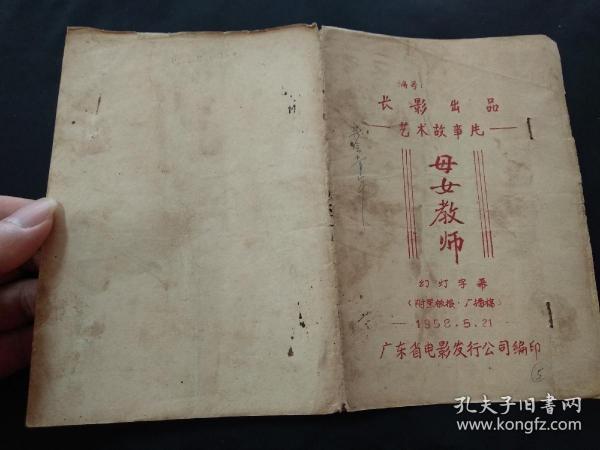 编号:
长影出品
—艺术故事片—
母女教师
幻灯字幕
(附黑板报·广播稿)
—1958.5.21
广东省电影发行公司编印
5
孔夫子旧书网
www.kongfz.com